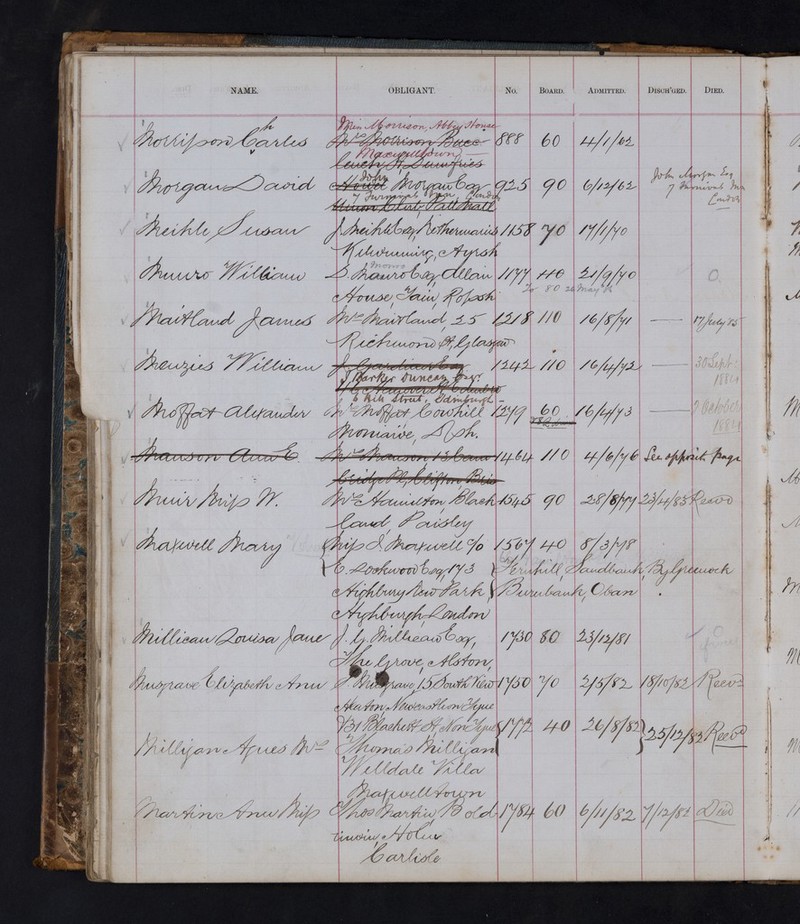 NAME. OBLIGANT. No. BOARD. ADMITTED. DISCH'GED. DIED.
Min Morrison, Abbey House
Morrison Charles Mrs Morrison Bucc 888 60 4/1/62
Maxwelltown
leuch St, Dumfries
John
Morgan David Howel Morgan Esq 925 90 6/12/62 John Morgan Esq
7 Furnivals Inn London 7 Furnivals Inn
Union Club, Pall Mall London
Meikle Susan J Meikle Esq, 1158 70 17/1/70
Kilwinning, Ayrsh
Munro
Munro William D. Munro Esq, Allan 1177 40 21/9/70
House, Tain, Rossh To 80 26 May
Maitland James Mrs Maitland, 25 1218 110 16/5/71 17 July 85
Richmond St, Glasgow
Menzies William J. Gardiner Esq 1242 110 16/4/72 30 Sept
J Barker Duncan Esqr. 1884
6 Hill Street, Edinburgh
Moffat Alexander Mrs Moffat Cowhill 1279 60 16/4/73 7 October
Moniaive, Dfsh. 1884
Manson Ann E. Mrs Manson 13 Cam 1464 110 4/6/76 See opposite page
bridge Pl, Clifton Bris
Muir Miss W. Mrs Hamilton, Black 1545 90 28/8/77 23/4/85 Recovd
land, Paisley
Maxwell Mary Miss J. Maxwell c/o 1567 40 8/3/78
C. Lockwood Esq, 173 Fernhill, Sandbank, By Greenock
Highbury New Park Burnbank, Oban
Highburgh London
Millican Louisa Jane J. G. Millican Esq, 1730 80 23/12/81
The Grove, Alston,
Musgrave Elizabeth Ann Musgrave, 15 South View 1750 70 2/5/82 18/10/82 Recvd
Heaton, Newcastle on Tyne
31 Blackett St, N on Tyne
Milligan Agnes Mrs Thomas Milligan 1772 40 26/8/82 25/12/82 Recvd
Welldale Villa
Maxwelltown
Martin Ann Miss Thos Martin 1784 60 6/11/82 7/12/82 Died
Holm
Carlisle